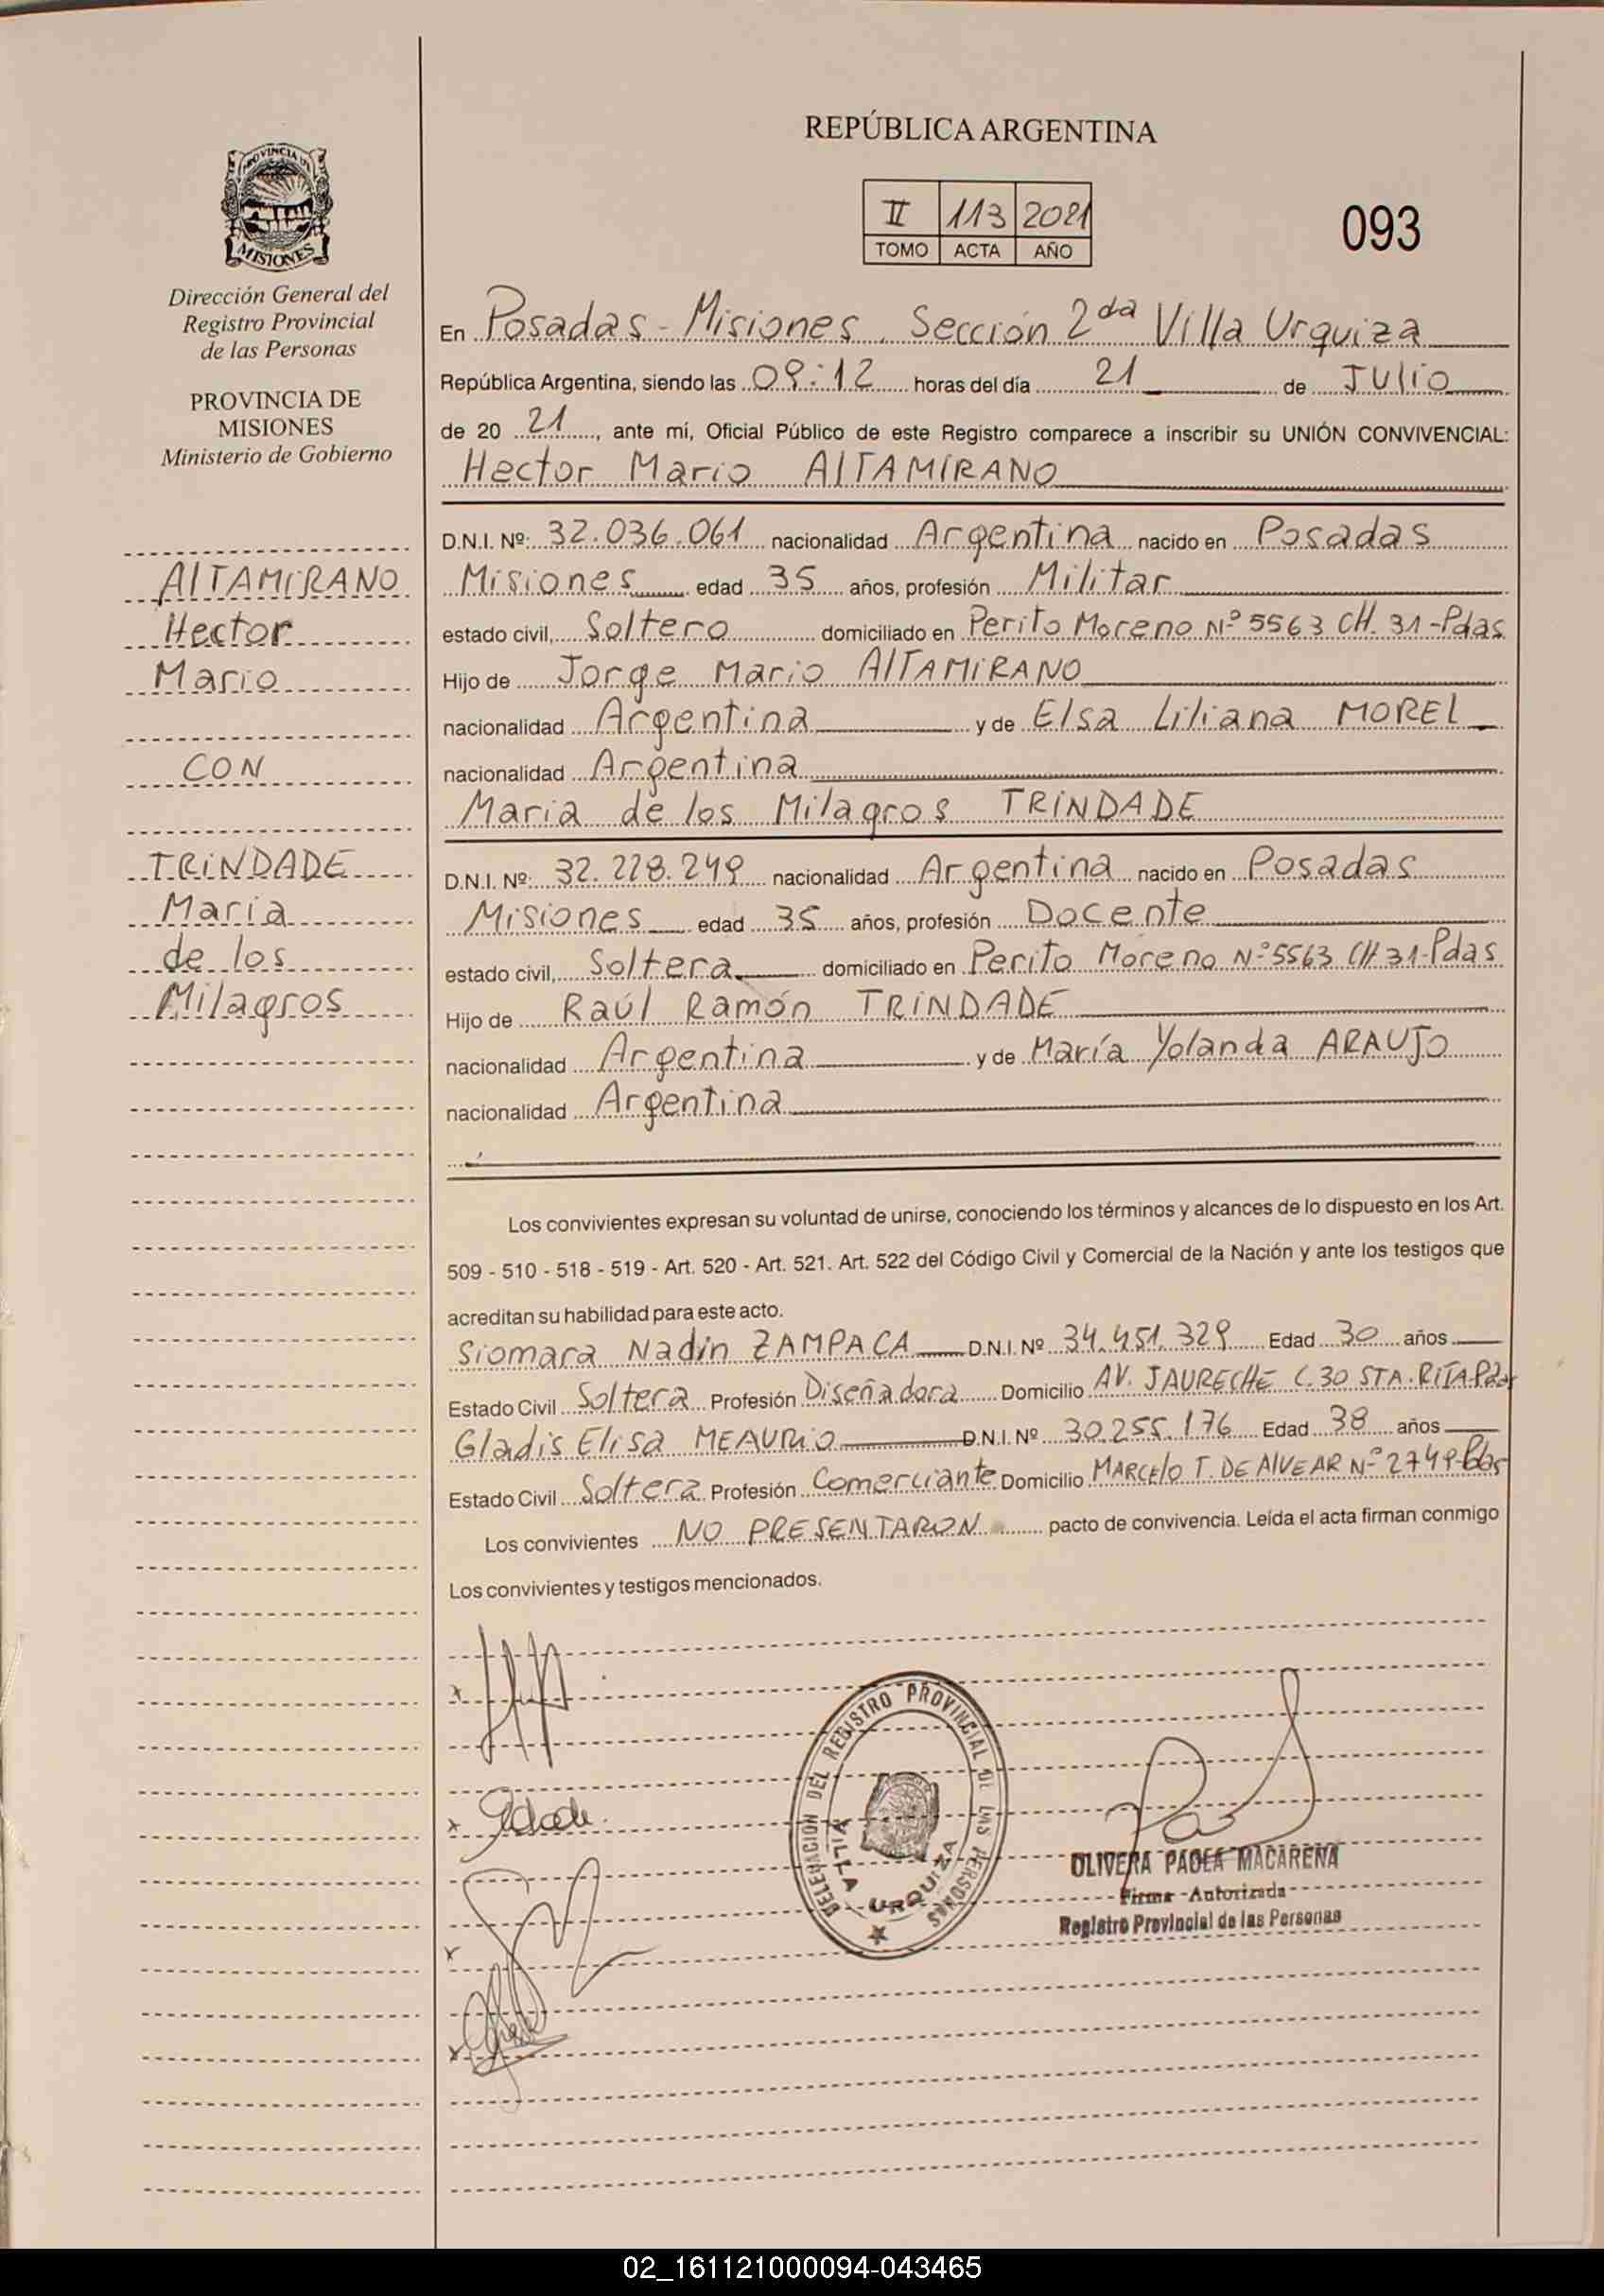 REPÚBLICA ARGENTINA
II 113 2021
TOMO ACTA AÑO
093
PROVINCIA DE
MISIONES
Dirección General del
Registro Provincial
de las Personas
PROVINCIA DE
MISIONES
Ministerio de Gobierno
ALTAMIRANO
Hector
Mario
CON
TRINDADE
Maria
de los
Milagros
En Posadas - Misiones, Sección 2da Villa Urquiza
República Argentina, siendo las 09:12 horas del día 21 de Julio
de 20 21, ante mí, Oficial Público de este Registro comparece a inscribir su UNIÓN CONVIVENCIAL:
Hector Mario ALTAMIRANO
D.N.I. Nº: 32.036.061 nacionalidad Argentina nacido en Posadas
Misiones edad 35 años, profesión Militar
estado civil, Soltero domiciliado en Perito Moreno Nº 5563 CH. 31-Pdas
Hijo de Jorge Mario ALTAMIRANO
nacionalidad Argentina y de Elsa Liliana MOREL
nacionalidad Argentina
Maria de los Milagros TRINDADE
D.N.I. Nº: 32.228.249 nacionalidad Argentina nacido en Posadas
Misiones edad 35 años, profesión Docente
estado civil, Soltera domiciliado en Perito Moreno Nº 5563 CH 31-Pdas
Hijo de Raúl Ramón TRINDADE
nacionalidad Argentina y de María Yolanda ARAUJO
nacionalidad Argentina
Los convivientes expresan su voluntad de unirse, conociendo los términos y alcances de lo dispuesto en los Art.
509 - 510 - 518 - 519 - Art. 520 - Art. 521. Art. 522 del Código Civil y Comercial de la Nación y ante los testigos que
acreditan su habilidad para este acto.
Siomara Nadin ZAMPACA D.N.I. Nº 34.451.329 Edad 30 años
Estado Civil Soltera Profesión Diseñadora Domicilio AV. JAURECHE C.30 STA.RITA-Pdas
Gladis Elisa MEAURIO D.N.I. Nº 30.255.176 Edad 38 años
Estado Civil Soltera Profesión Comerciante Domicilio MARCELO T. DE ALVEAR Nº 2749-Pdas
Los convivientes NO PRESENTARON pacto de convivencia. Leída el acta firman conmigo
Los convivientes y testigos mencionados.
DELEGACION DEL REGISTRO PROVINCIAL DE LAS PERSONAS
VILLA URQUIZA
OLIVERA PAOLA MACARENA
Firma Autorizada
Registro Provincial de las Personas
02_161121000094-043465